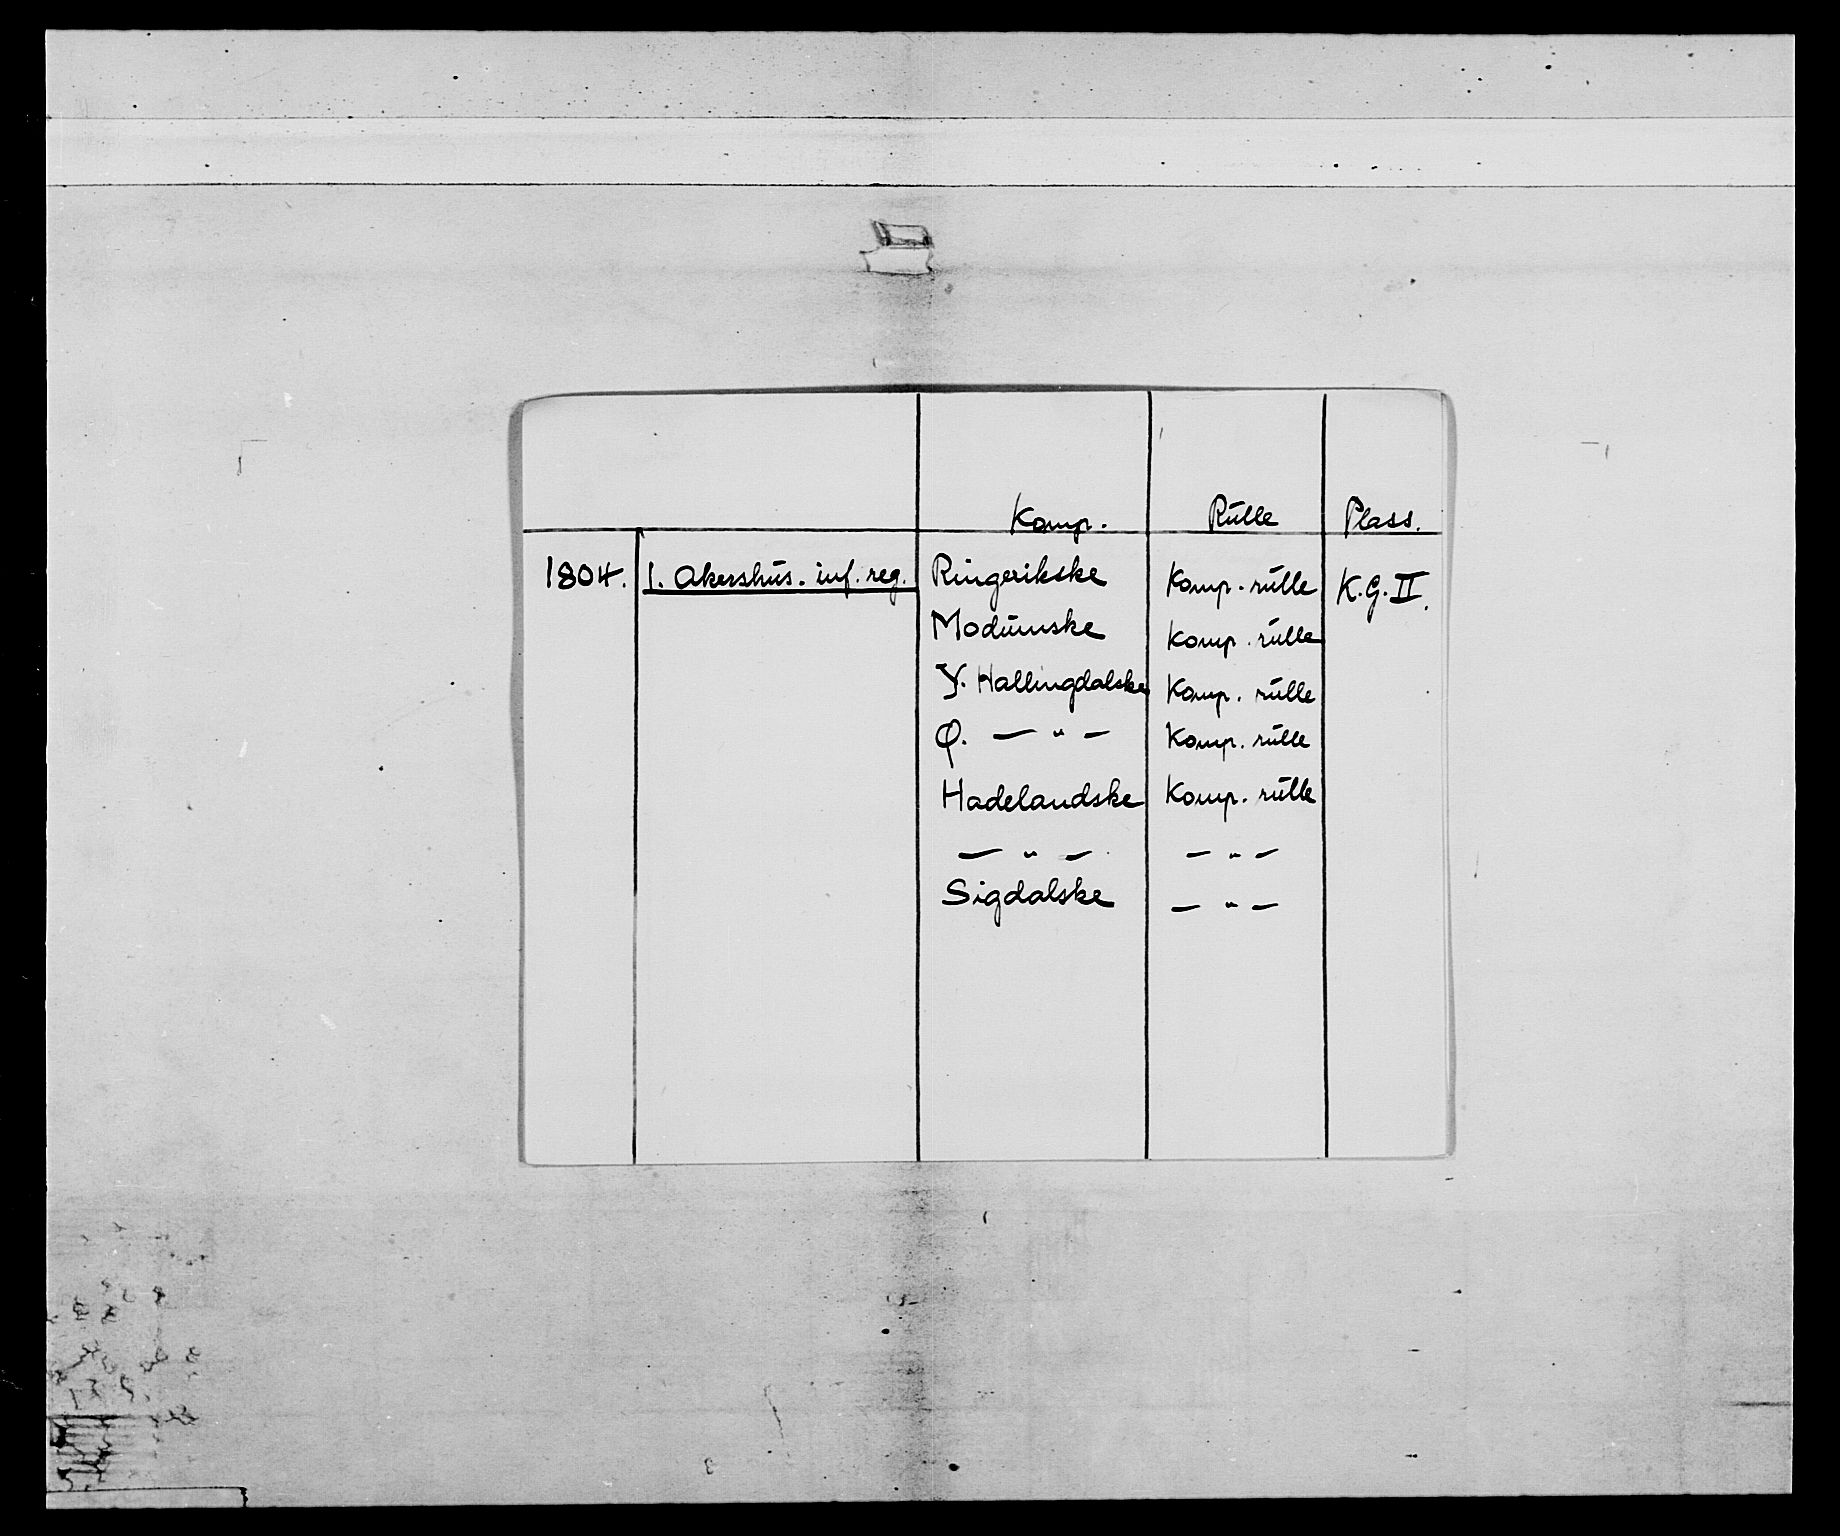 Komp. Rulle Plass.
1804. 1. Akershus. inf. reg. Ringerikske Komp. rulle K.G.II.
Modumske Komp. rulle
Y. Hallingdalske Komp. rulle
Ø. — " — Komp. rulle
Hadelandske Komp. rulle
— " — — " —
Sigdalske — " —